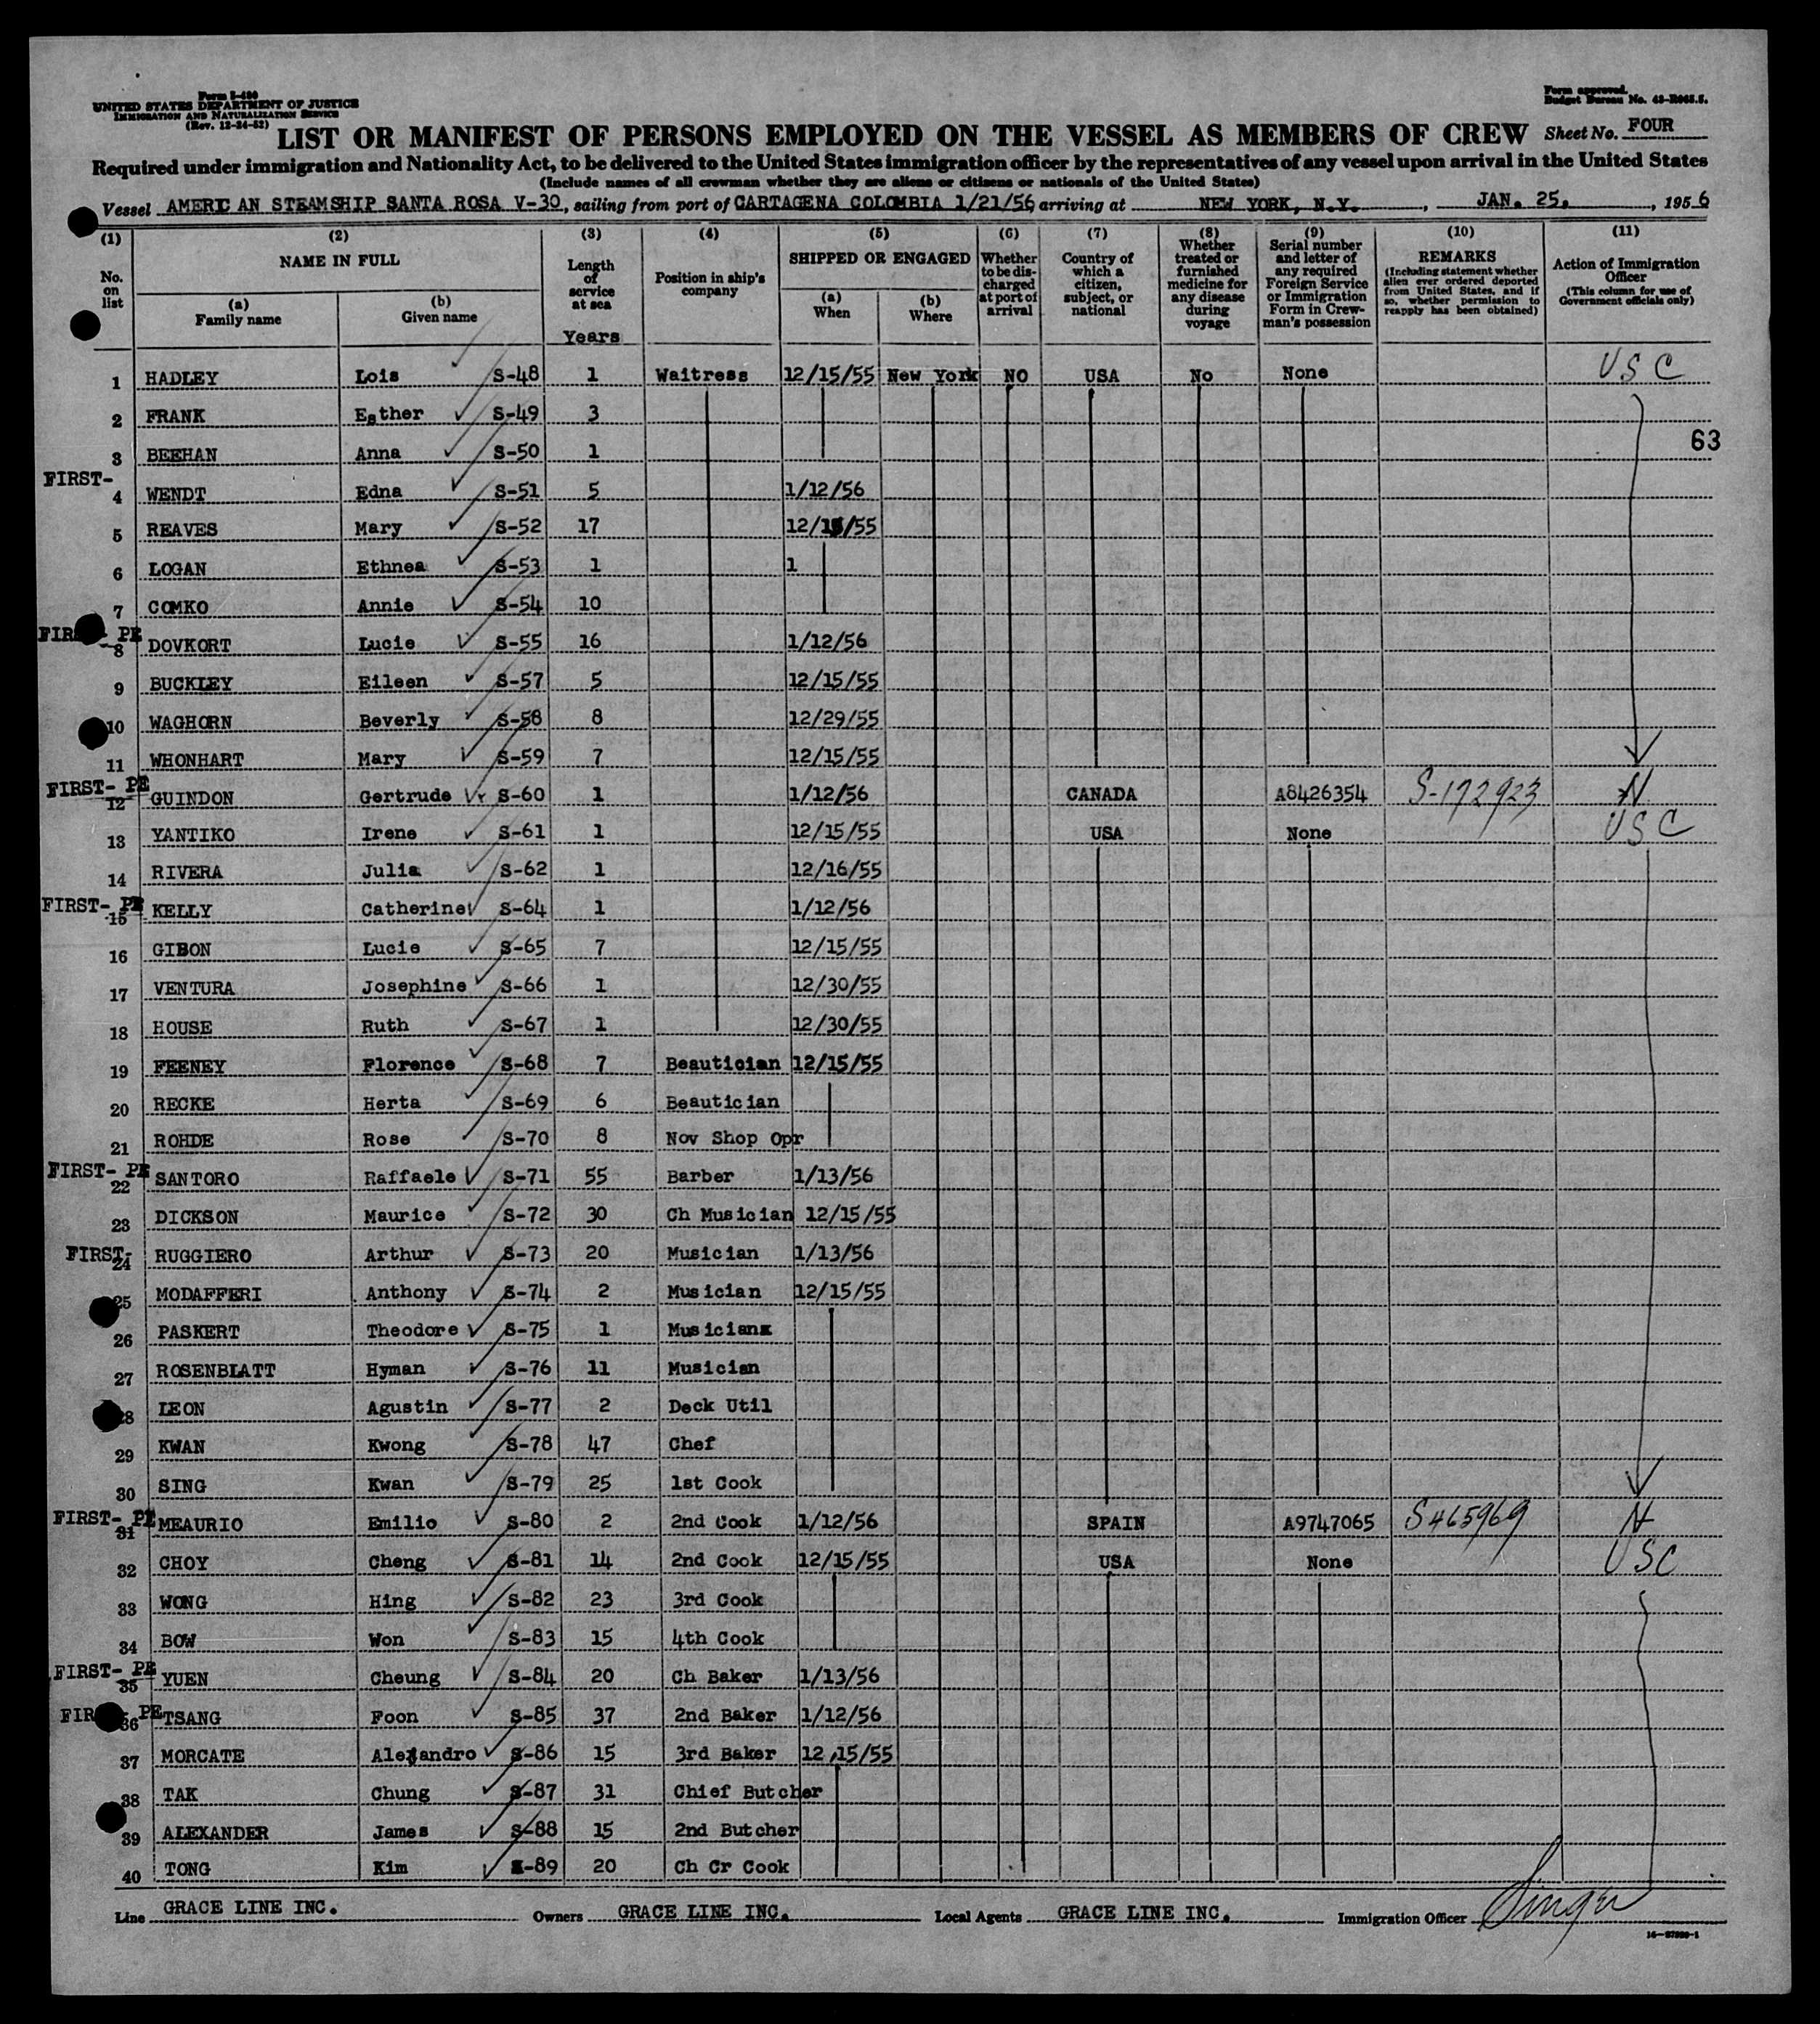 Form I-480
UNITED STATES DEPARTMENT OF JUSTICE
IMMIGRATION AND NATURALIZATION SERVICE
(Rev. 12-24-52)
Form approved.
Budget Bureau No. 43-R065.5.
LIST OR MANIFEST OF PERSONS EMPLOYED ON THE VESSEL AS MEMBERS OF CREW Sheet No. FOUR
Required under immigration and Nationality Act, to be delivered to the United States immigration officer by the representatives of any vessel upon arrival in the United States
(Include names of all crewman whether they are aliens or citizens or nationals of the United States)
Vessel AMERICAN STEAMSHIP SANTA ROSA V-30, sailing from port of CARTAGENA COLOMBIA 1/21/56, arriving at NEW YORK, N.Y., JAN. 25, 1956
(1) (2) (3) (4) (5) (6) (7) (8) (9) (10) (11)
No. on list
NAME IN FULL
(a) Family name
(b) Given name
Length of service at sea
Years
Position in ship's company
SHIPPED OR ENGAGED
(a) When
(b) Where
Whether to be discharged at port of arrival
Country of which a citizen, subject, or national
Whether treated or furnished medicine for any disease during voyage
Serial number and letter of any required Foreign Service or Immigration Form in Crewman's possession
REMARKS
(Including statement whether alien ever ordered deported from United States, and if so, whether permission to reapply has been obtained)
Action of Immigration Officer
(This column for use of Government officials only)
1 HADLEY Lois S-48 1 Waitress 12/15/55 New York NO USA No None USC
2 FRANK Esther S-49 3
63
3 BEEHAN Anna S-50 1
FIRST- 4 WENDT Edna S-51 5 1/12/56
5 REAVES Mary S-52 17 12/15/55
6 LOGAN Ethnea S-53 1 1
7 COMKO Annie S-54 10
FIRST- PE 8 DOVKORT Lucie S-55 16 1/12/56
9 BUCKLEY Eileen S-57 5 12/15/55
10 WAGHORN Beverly S-58 8 12/29/55
11 WHONHART Mary S-59 7 12/15/55
FIRST- PE 12 GUINDON Gertrude S-60 1 1/12/56 CANADA A8426354 S-172923 N
13 YANTIKO Irene S-61 1 12/15/55 USA None USC
14 RIVERA Julia S-62 1 12/16/55
FIRST- PE 15 KELLY Catherine S-64 1 1/12/56
16 GIBON Lucie S-65 7 12/15/55
17 VENTURA Josephine S-66 1 12/30/55
18 HOUSE Ruth S-67 1 12/30/55
19 FEENEY Florence S-68 7 Beautician 12/15/55
20 RECKE Herta S-69 6 Beautician
21 ROHDE Rose S-70 8 Nov Shop Opr
FIRST- PE 22 SANTORO Raffaele S-71 55 Barber 1/13/56
23 DICKSON Maurice S-72 30 Ch Musician 12/15/55
FIRST- 24 RUGGIERO Arthur S-73 20 Musician 1/13/56
25 MODAFFERI Anthony S-74 2 Musician 12/15/55
26 PASKERT Theodore S-75 1 Musicianx
27 ROSENBLATT Hyman S-76 11 Musician
28 LEON Agustin S-77 2 Deck Util
29 KWAN Kwong S-78 47 Chef
30 SING Kwan S-79 25 1st Cook
FIRST- PE 31 MEAURIO Emilio S-80 2 2nd Cook 1/12/56 SPAIN A9747065 S465969 N
32 CHOY Cheng S-81 14 2nd Cook 12/15/55 USA None USC
33 WONG Hing S-82 23 3rd Cook
34 BOW Won S-83 15 4th Cook
FIRST- PE 35 YUEN Cheung S-84 20 Ch Baker 1/13/56
FIRST- PE 36 TSANG Foon S-85 37 2nd Baker 1/12/56
37 MORCATE Alejandro S-86 15 3rd Baker 12/15/55
38 TAK Chung S-87 31 Chief Butcher
39 ALEXANDER James S-88 15 2nd Butcher
40 TONG Kim S-89 20 Ch Cr Cook
Line GRACE LINE INC. Owners GRACE LINE INC. Local Agents GRACE LINE INC. Immigration Officer Singer